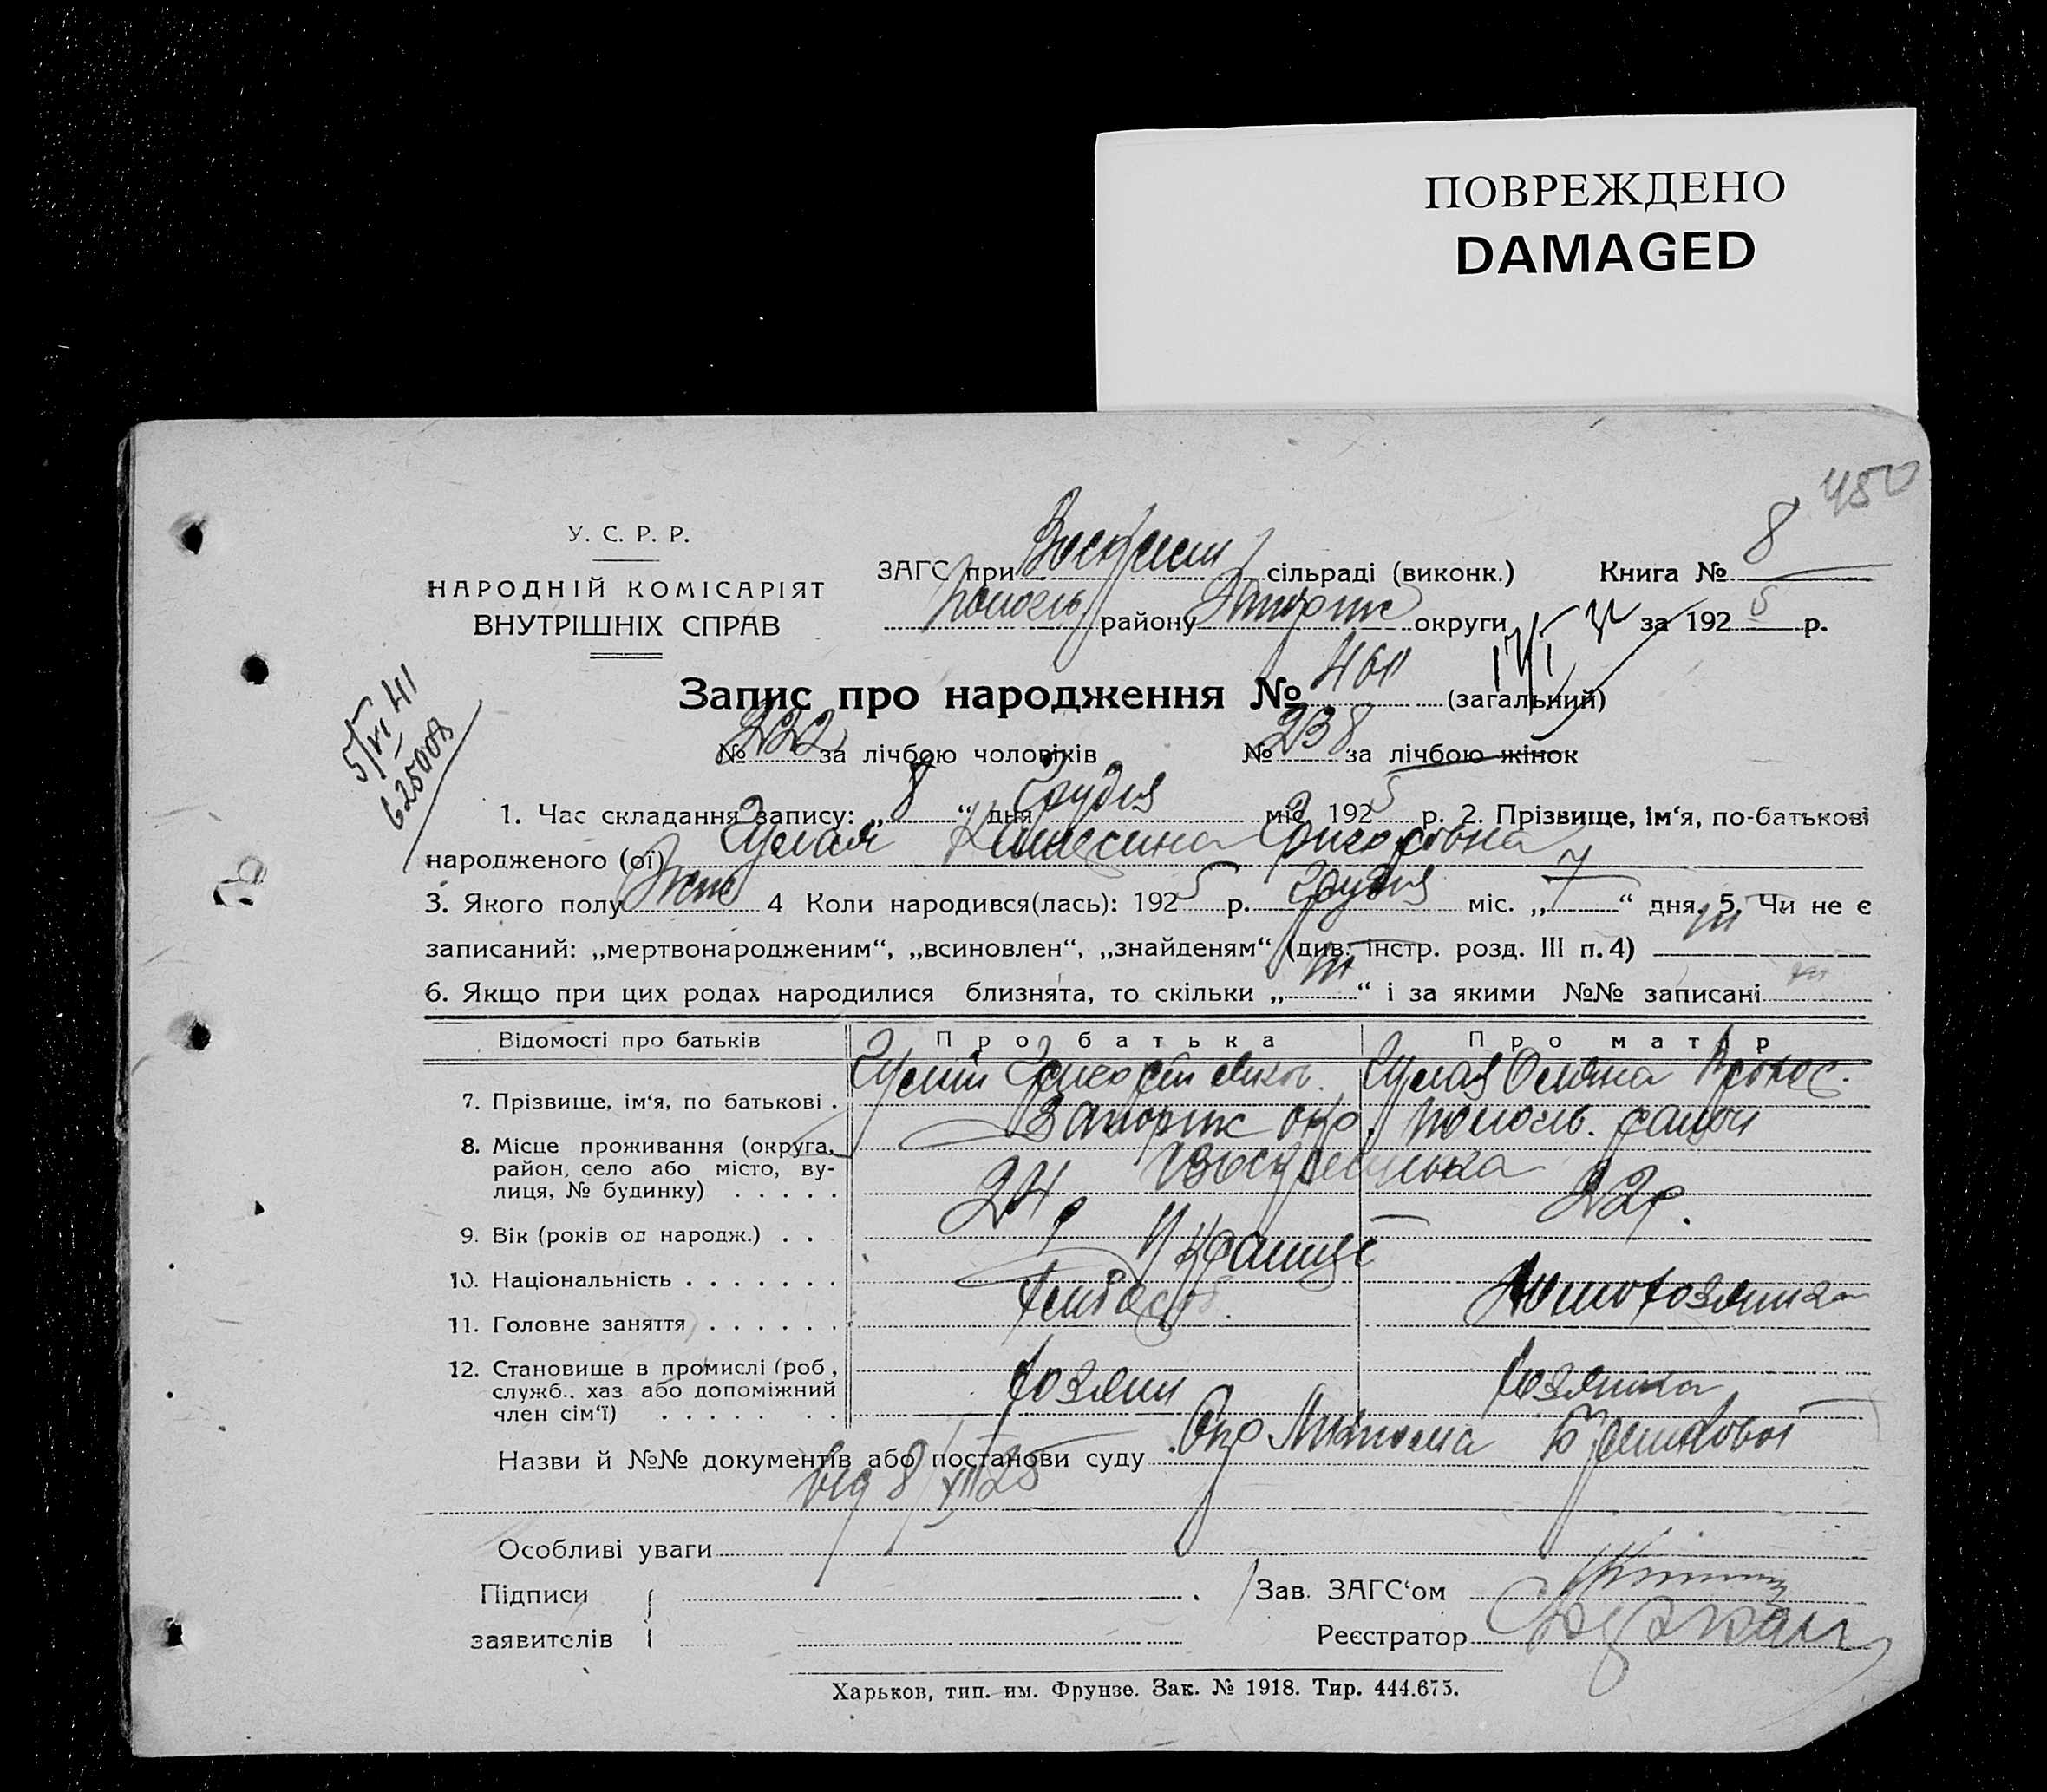 ПОВРЕЖДЕНО
DAMAGED
450
У. С. Р. Р.
НАРОДНІЙ КОМІСАРІЯТ
ВНУТРІШНІХ СПРАВ
ЗАГС при Воскресен сільраді (виконк.) Книга № 8
району Запоріж округи за 1925 р.
5/VI 41
625008
Запис про народження № 460 (загальний)
№ 222 за лічбою чоловіків № 238 за лічбою жінок
1. Час складання запису: „8“ дня Грудня міс. 1925 р. 2. Прізвище, ім‘я, по-батькові
народженого (ої) Григоровна
3. Якого полу Жін 4 Коли народився(лась): 1925 р. Грудня міс. „7“ дня. 5. Чи не є
записаний: „мертвонародженим“, „всиновлен“, „знайденям“ (див. інстр. розд. III п. 4)
6. Якщо при цих родах народилися близнята, то скільки „ “ і за якими №№ записані
Відомості про батьків Про батька Про матір
7. Прізвище, ім‘я, по батькові .
8. Місце проживання (округа, Запоріж окр. район
район, село або місто, ву- Воскресенька
лиця, № будинку) . . . . .
9. Вік (років од народж.) . . 24р 22р.
10. Національність . . . . . . . Українці
11. Головне заняття . . . . . . Хлібороб. Домохозяйка
12. Становище в промислі (роб., хозяин хозяйка
служб., хаз або допоміжний
член сім‘ї) . . . . . . .
Назви й №№ документів або постанови суду
від 8/XII 25
Особливі уваги
Підписи Зав. ЗАГС‘ом
заявителів Реєстратор
Харьков, тип. им. Фрунзе. Зак. № 1918. Тир. 444.675.